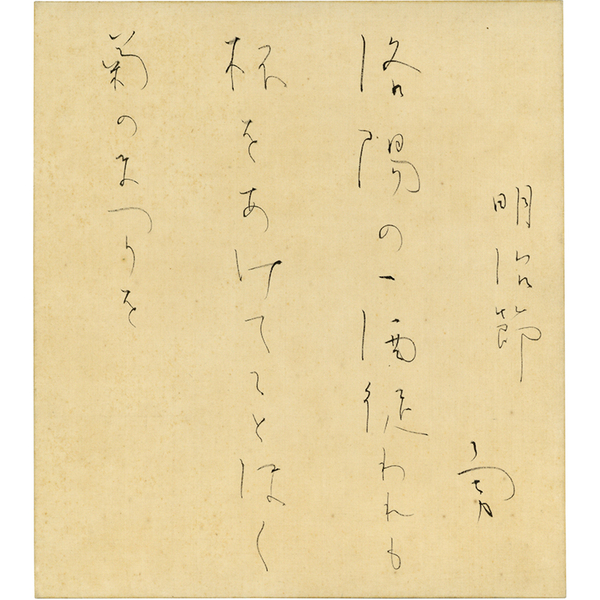 明治節
勇
洛陽の一酒徒われも
杯をあけてことほく
菊のまつりを